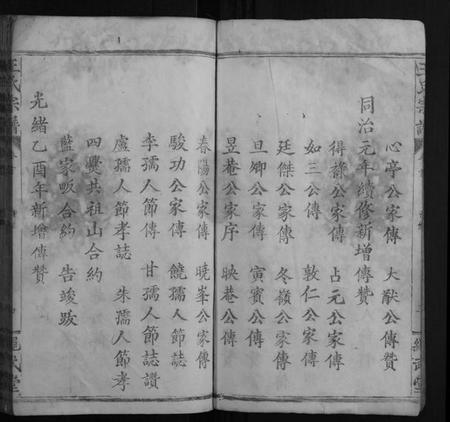 王氏宗譜
心亭公家傳 大猷公傳贊
同治元年續修新增傳贊
得靜公家傳 占元公家傳
如三公傳 敦仁公家傳
廷傑公家傳 冬嶺公家傳
旦卿公家傳 寅賓公傳
昱菴公家序 映菴公傳
春陽公家傳 曉峯公家傳
駿功公家傳 饒孺人節誌
李孺人節傳 甘孺人節誌讚
盧孺人節孝誌 朱孺人節孝
四㸑共祖山合約
藍家畈合約 告竣跋
光緒乙酉年新增傳贊
王氏宗譜
繩武堂